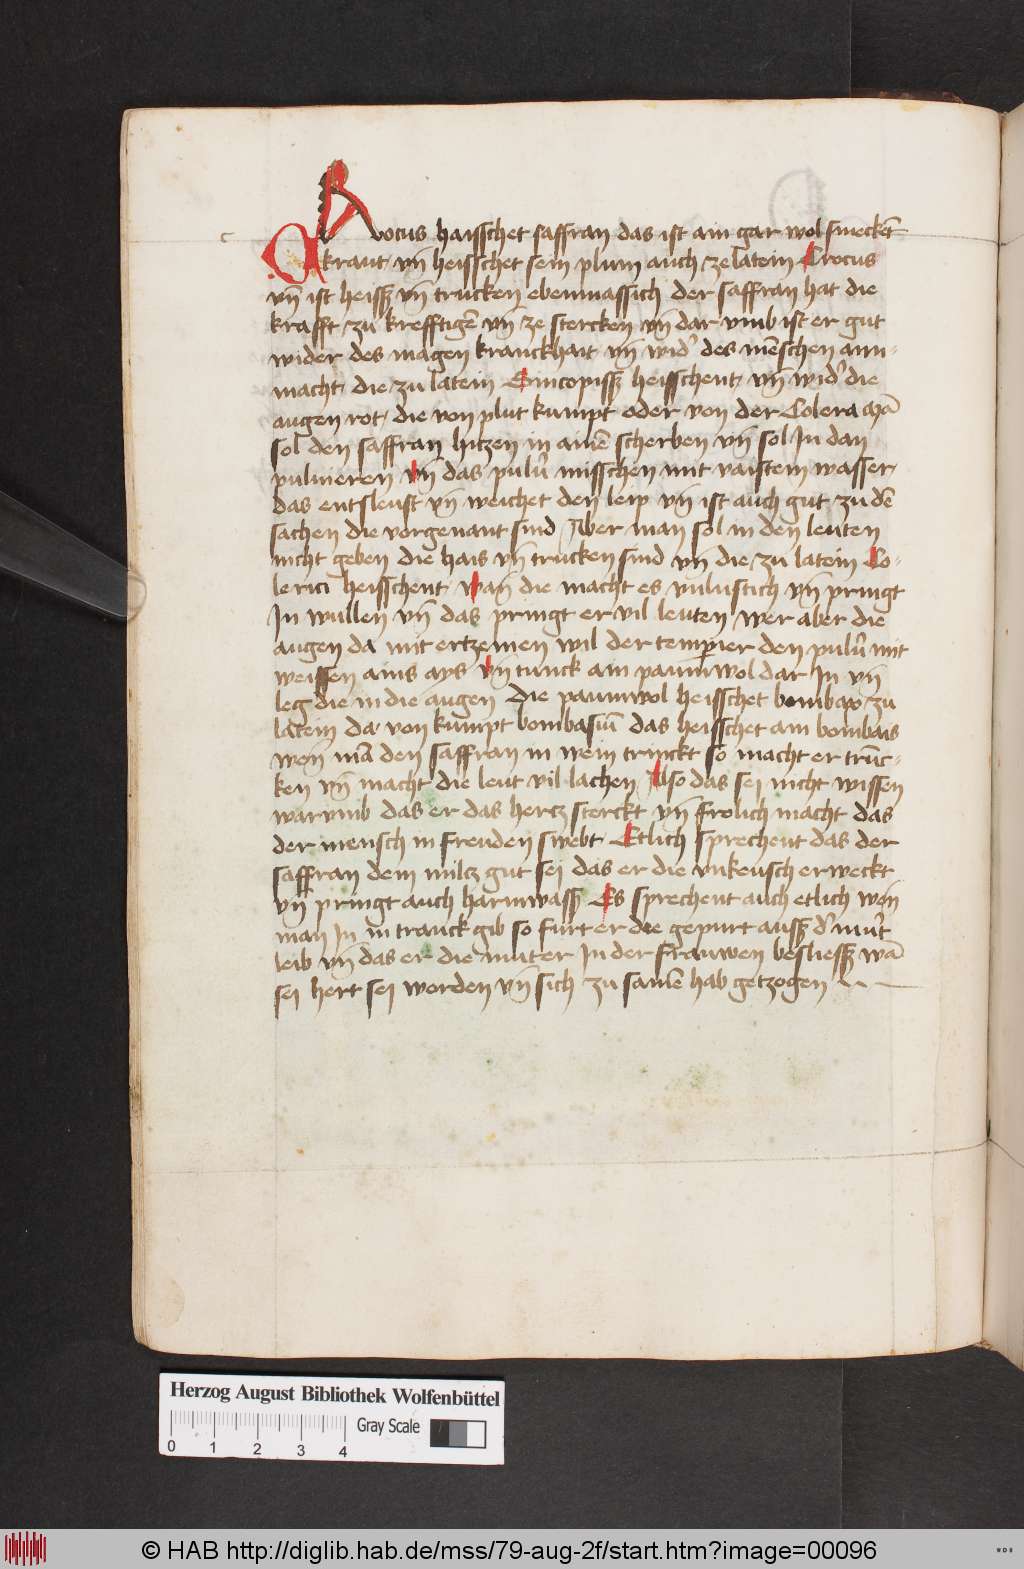 c Rocus haisschet saffran das ist ain gar wol smeckēt
kraut vn̄ heisschet sein plum auch ze latein Crocus
vn̄ ist heiss vn̄ trucken ebenmassich der saffran hat die
krafft zu krefftigē vn̄ ze stercken vn̄ dar vmb ist er gut
wider des magen kranckhait vn̄ wid' des mēschen ann-
macht die zu latein Sincopiss heisschent vn̄ wid' die
augen rot die von plut kumpt oder von der Colera mā
sol den saffran hitzen in ainē scherben vn̄ sol In dan
puluieren vn̄ das pulū misschen mit warstem wasser
das entsleust vn̄ weichet den leip vn̄ ist auch gut zu dē
sachen die vorgenant sind Aber man sol in den leuten
nicht geben die hais vn̄ trucken sind vn̄ die zu latein Co-
lerici heisschent wan̄ die macht es vnlustich vn̄ pringt
In wullen vn̄ das pringt er vil leuten wer aber die
augen da mit ertzeinen wil der tempier den pulū mit
weissen ains ays vn̄ tunck ain paumwol dar In vn̄
leg die in die augen die paumwol heisschet bombax zu
latein da von kumpt bombasiū das heisschet am bombais
wen̄ mā den saffran in wein trinckt so macht er trūc-
ken vn̄ macht die leut vil lachen Also das sei nicht wissen
warvmb das er das hertz sterckt vn̄ frolich macht das
der mensch in freuden swebt Etlich sprechent das der
saffran dem miltz gut sei das er die vnkeusch erweckt
vn̄ pringt auch harmwass Es sprechent auch etlich wen̄
man In in tranck gib so furt er die gepurt auss d' mut'
leib vn̄ das er die muter In der frauwen besliess wā
sei hert sei worden vn̄ sich zu samē hab getzogen
Herzog August Bibliothek Wolfenbüttel
Gray Scale
0 1 2 3 4
© HAB http://diglib.hab.de/mss/79-aug-2f/start.htm?image=00096